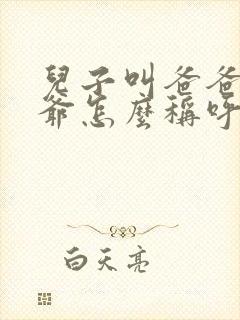 兒子叫爸爸
爺怎麼稱呼
白天亮